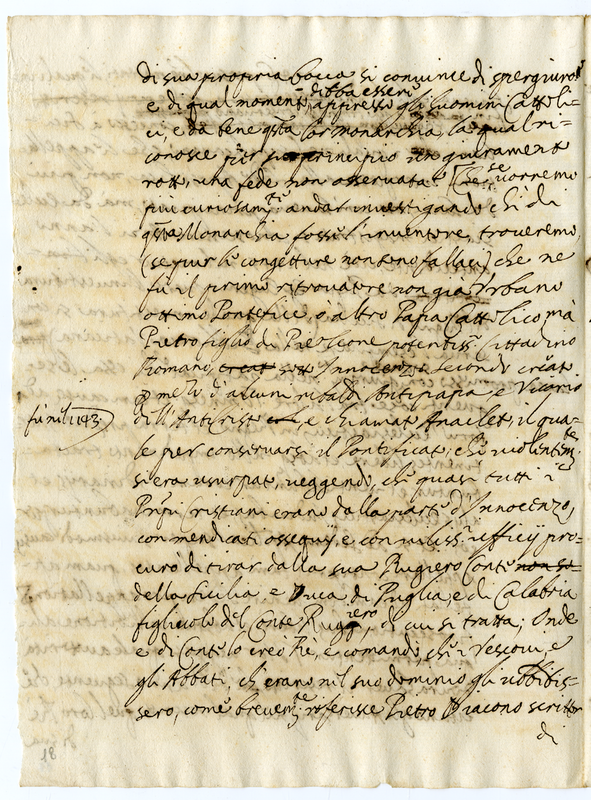 di sua propria bocca si convince di spergiuro?
e di qual momento debba essere appresso gli huomini Cattoli=
ci, e da bene qsta lor monarchia la qual ri=
conosce per suo principio un giuramento
rotto, una fede non osservata? [Che se vorremo
più curiosamte andar investigando chi di
qsta Monarchia fosse l'inventore, troveremo,
(se pur le congetture non sono fallaci) che ne
fù il primo ritrovatore non già Urbano
ottimo Pontefice, ò altro Papa Cattolico mà
Pietro figlio di Pier Leone potentissº Cittadino
Romano, creato sotto Innocenzo Secondo creato
p mezo d'alcuni ribaldi Antipapa, e Vicario
fù nel 1143.
dell'Antichristo, e chiamato Anacleto, il qua=
le per conservarsi il Pontificato, che violentemte
si era usurpato, veggendo, che quasi tutti i
Prnpi Cristiani erano dalla parte d'Innocenzo,
con mendicati ossequij, e con vilissi ufficij pro=
curò di tirar dalla sua Rugiero Conte non so
della Sicilia e Duca di Puglia, e di Calabria
figliuolo del Conte Ruggiero, di cui si tratta; Onde
e di Conte lo creò Rè, e comandò, che i Vescovi, e
gli Abbati, ch'erano nel suo dominio gli ubbidis=
sero, come brevemte riferisce Pietro Diacono scrittor
di
18